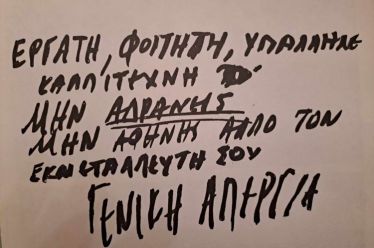 ΕΡΓΑΤΗ, ΦΟΙΤΗΤΗ, ΥΠΑΛΛΗΛΕ
ΚΑΛΛΙΤΕΧΝΗ
ΜΗΝ ΑΔΡΑΝΗΣ
ΜΗΝ ΑΛΛΟ ΤΟΝ
ΕΚΜΕΤΑΛΛΕΥΤΗ ΣΟΥ
ΓΕΝΙΚΗ ΑΠΕΡΓΙΑ